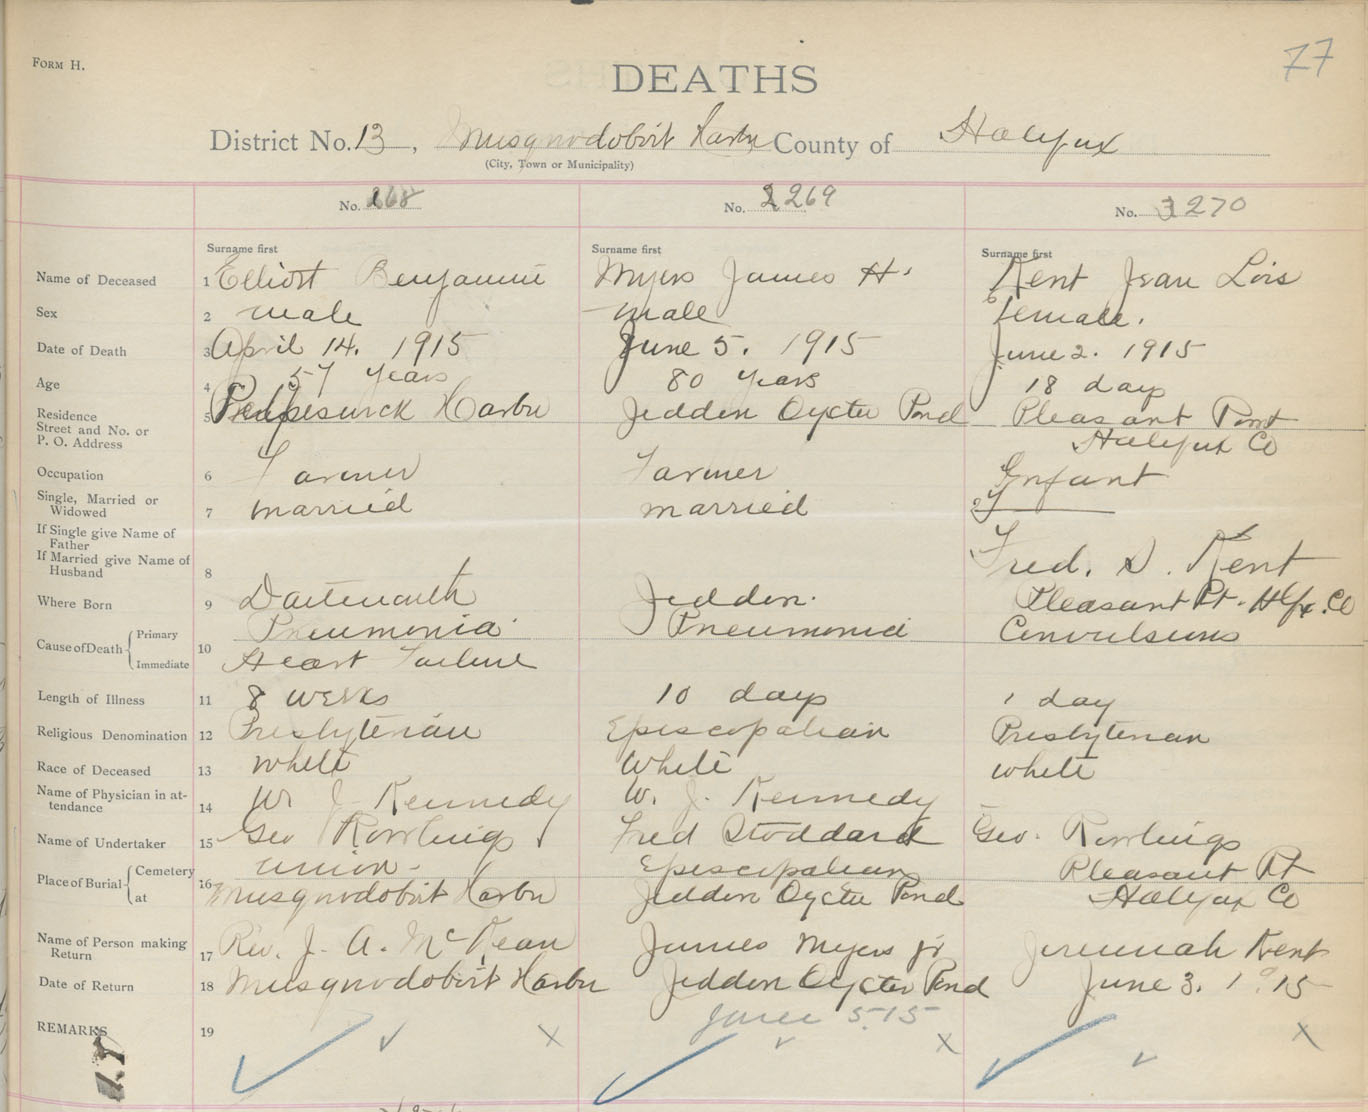 FORM H.
77
DEATHS
District No. 13, Musquodoboit Harbr County of Halifax
(City, Town or Municipality)
No. 268 No. 269 No. 270
Surname first Surname first Surname first
Name of Deceased 1 Elliott Benjamin Myers James H. Kent Jean Lois
Sex 2 male male female.
Date of Death 3 April 14. 1915 June 5. 1915 June 2. 1915
Age 4 57 years 80 years 18 days
Residence
Street and No. or
P. O. Address 5 Harbr Jeddon Oyster Pond Pleasant Point
Halifax Co
Occupation 6 Farmer Farmer Infant
Single, Married or
Widowed 7 married married
If Single give Name of
Father
If Married give Name of
Husband 8 Fred. D. Kent
Where Born 9 Dartmouth Jeddon. Pleasant Pt. Hlfx. Co
Cause of Death Primary 10 Pneumonia Pneumonia Convulsions
Immediate Heart Failure
Length of Illness 11 8 weeks 10 days 1 day
Religious Denomination 12 Presbyterian Episcopalian Presbyterian
Race of Deceased 13 White White White
Name of Physician in at-
tendance 14 W J Kennedy W. J. Kennedy –
Name of Undertaker 15 Geo Rowlings Fred Stoddard Geo. Rowlings
Place of Burial Cemetery 16 Union - Episcopalian Pleasant Pt
at Musquodoboit Harbr Jeddon Oyster Pond Halifax Co
Name of Person making
Return 17 Rev. J. A. McKean James Myers jr Jeremiah Kent
Date of Return 18 Musquodoboit Harbr Jeddon Oyster Pond June 3. 1915
June 5. 15
REMARKS 19